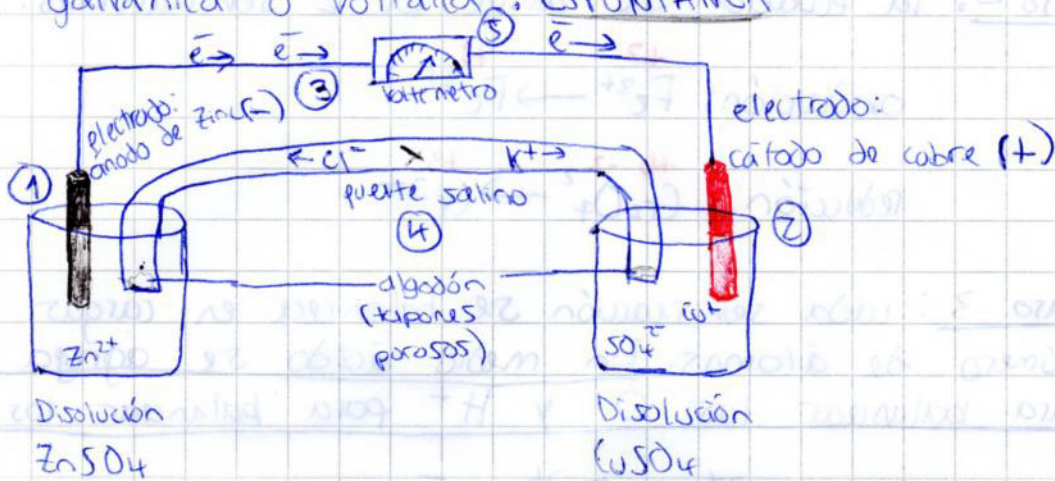 galvánica o voltaica: ESPONTÁNEA
e⁻→ e⁻→ ⑤ e⁻→
③ voltímetro
electrodo:
ánodo de zinc(-)
electrodo:
cátodo de cobre (+)
← Cl⁻ K⁺→
puente salino
①
②
④
algodón
(tapones
porosos)
Zn²⁺
SO₄²⁻
Disolución
ZnSO₄
Disolución
CuSO₄